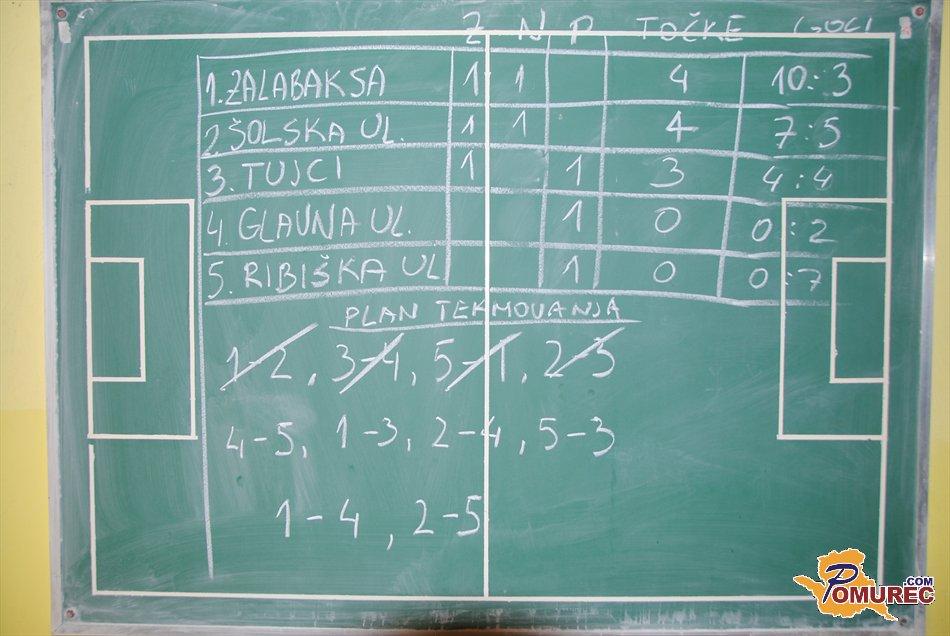 Z N P TOČKE GOLI
1. ZALABAKSA 1 1 4 10:3
2 ŠOLSKA UL. 1 1 4 7:5
3. TUJCI 1 1 3 4:4
4. GLAVNA UL. 1 0 0:2
5. RIBIŠKA UL 1 0 0:7
PLAN TEKMOVANJA
1-2, 3-4, 5-1, 2-3
4-5, 1-3, 2-4, 5-3
1-4, 2-5
POMUREC.COM